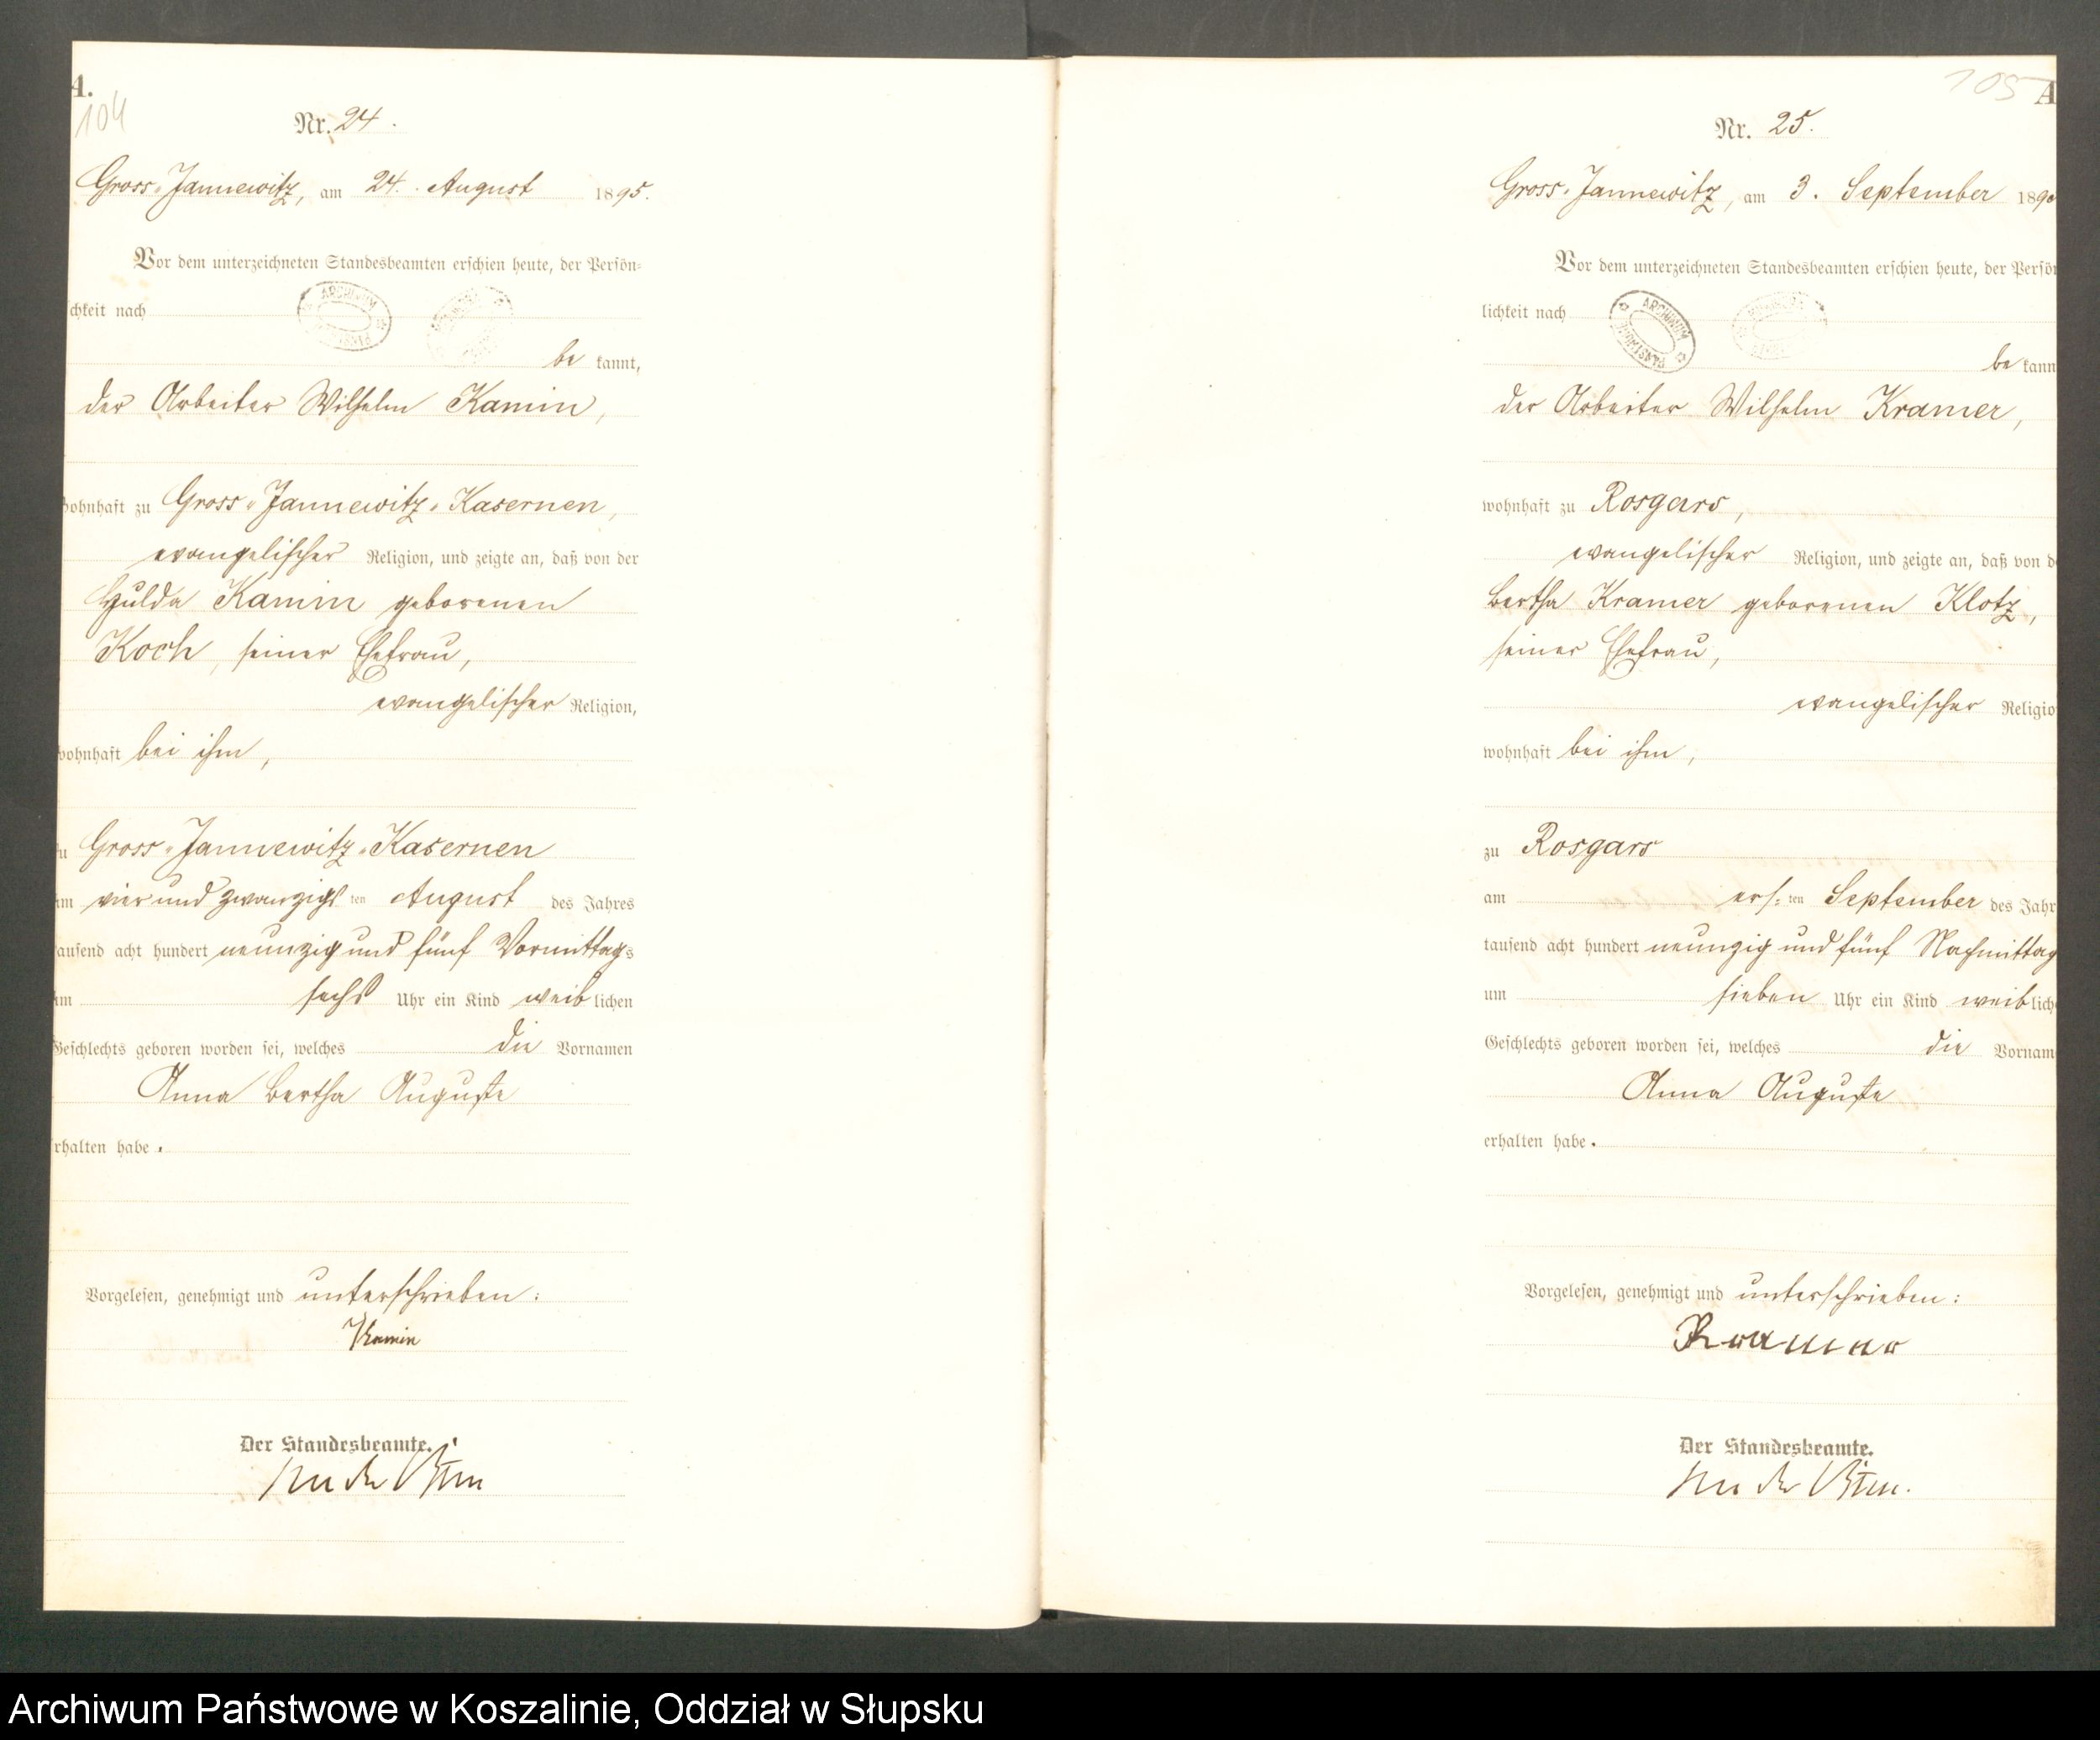 A.
104
Nr. 24.
Gross-Jannewitz, am 24. August 1895.
Vor dem unterzeichneten Standesbeamten erschien heute, der Persön-
chkeit nach
be kannt,
der Arbeiter Wilhelm Kamin,
wohnhaft zu Gross-Jannewitz-Kasernen,
evangelischer Religion, und zeigte an, daß von der
Hulda Kamin geborenen
Koch, seiner Ehefrau,
evangelischer Religion,
wohnhaft bei ihm,
zu Gross-Jannewitz-Kasernen
am vier und zwanzigsten August des Jahres
tausend acht hundert neunzig und fünf Vormittags
um sechs Uhr ein Kind weiblichen
Geschlechts geboren worden sei, welches die Vornamen
Anna Bertha Auguste
erhalten habe.
Vorgelesen, genehmigt und unterschrieben:
Kamin
Der Standesbeamte.
105
A
Nr. 25.
Gross-Jannewitz, am 3. September 189
Vor dem unterzeichneten Standesbeamten erschien heute, der Persön
lichkeit nach
ARCHIWUM PAŃSTWOWE
be kann
der Arbeiter Wilhelm Kramer,
wohnhaft zu Rosgars,
evangelischer Religion, und zeigte an, daß von d
Bertha Kramer geborenen Klotz,
seiner Ehefrau,
evangelischer Religio
wohnhaft bei ihm,
zu Rosgars
am ersten September des Jahr
tausend acht hundert neunzig und fünf Nachmittag
um sieben Uhr ein Kind weiblich
Geschlechts geboren worden sei, welches die Vornam
Anna Auguste
erhalten habe.
Vorgelesen, genehmigt und unterschrieben:
Kramer
Der Standesbeamte.
Archiwum Państwowe w Koszalinie, Oddział w Słupsku